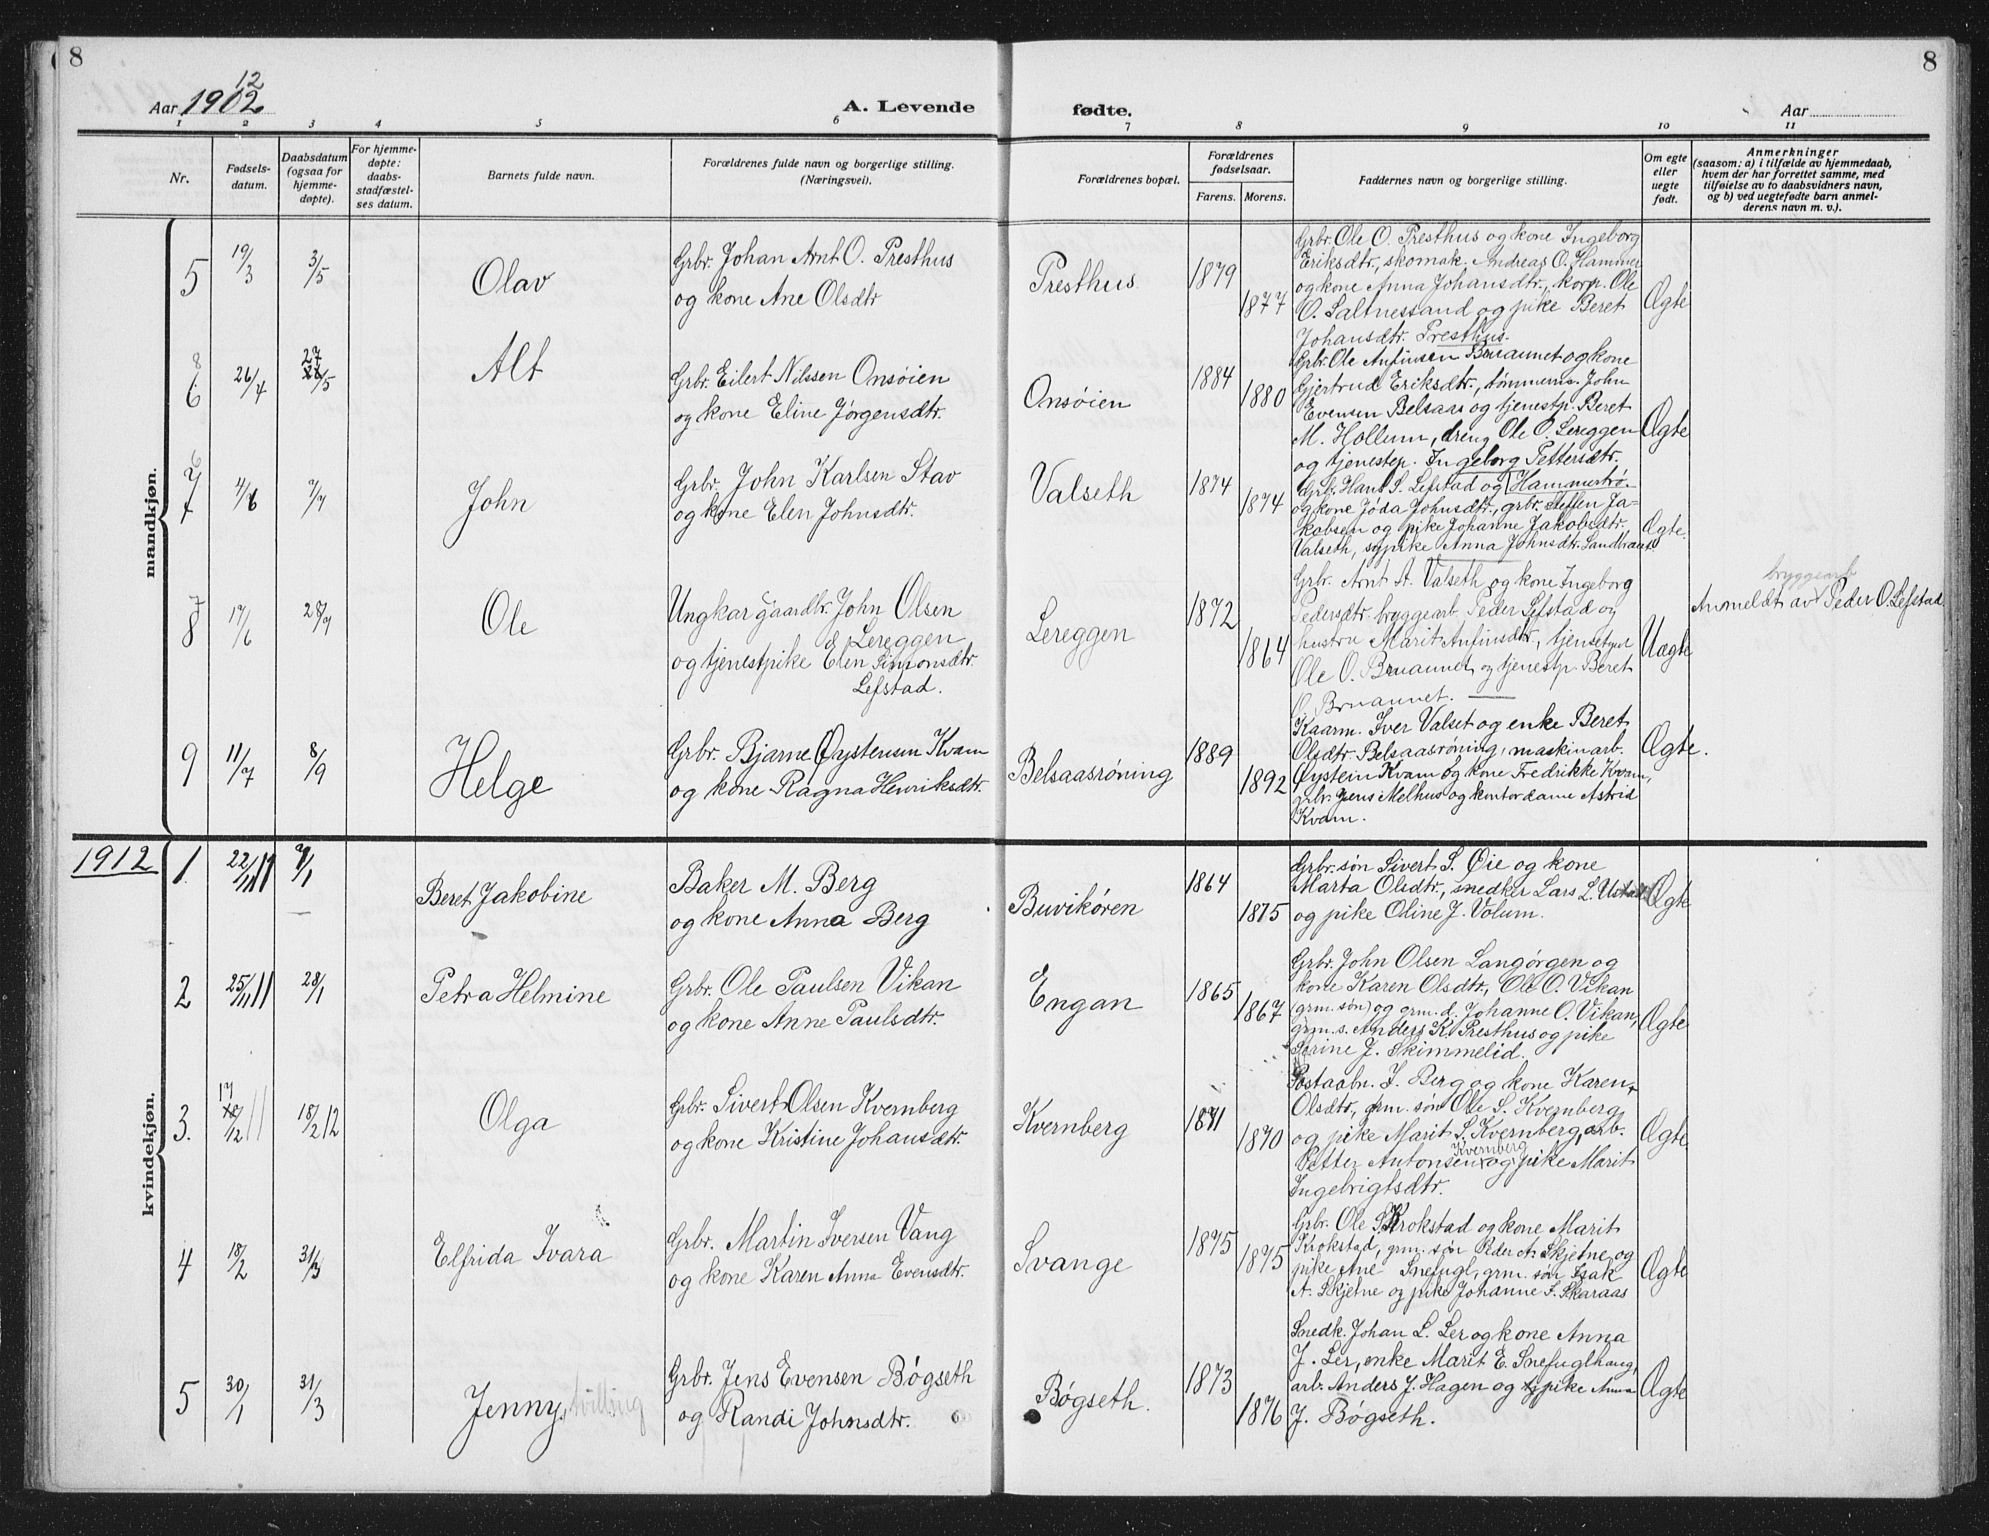 8
8
Aar 1902 12
A. Levende fødte.
Aar
1 2 3 4 5 6 7 8 9 10 11
Nr.
Fødsels-
datum.
Daabsdatum
(ogsaa for
hjemme-
døpte).
For hjemme-
døpte:
daabs-
stadfæstel-
ses datum.
Barnets fulde navn.
Forældrenes fulde navn og borgerlige stilling.
(Næringsvei).
Forældrenes bopæl.
Forældrenes
fødselsaar.
Farens. Morens.
Faddernes navn og borgerlige stilling.
Om egte
eller
uegte
født.
Anmerkninger
(saasom: a) i tilfælde av hjemmedaab,
hvem der har forrettet samme, med
tilføielse av to daabsvidners navn,
og b) ved uegtefødte barn anmel-
derens navn m. v.).
mandkjøn.
5 19/3 3/5 Olav
Grbr. Johan Arnt O. Presthus
og kone Ane Olsdtr
Presthus 1879 1877
Grbr. Ole O. Presthus og kone Ingeborg
Eriksdtr., skomak. Andreas O. Hammer
og kone Anna Johansdtr., korp. Ole
O. Saltnessand og pike Beret
Johansdtr. Presthus.
Ægte
8
6 26/4 27/5 Alf
Grbr. Eilert Nilssen Onsøien
og kone Eline Jørgensdtr.
Onsøien 1884 1880
Grbr. Ole Anfinsen Bruaunet og kone
Gjertrud Eriksdtr., tømmerm. John
Evensen Belsaas og tjenestp. Beret
M. Hollum, dreng Ole O. Lereggen
og tjenestep. Ingeborg Pettersdtr.
Ægte
6
7 4/6 7/7 John
Grbr. John Karlsen Stav
og kone Elen Johnsdtr.
Valseth 1874 1874
Grbr. Hans S. Lefstad og Hammertrø.
og kone Jøda Johnsdtr., grbr. Steffen Ja-
kobsen og pike Johanne Jakobsdtr.
Valseth, sypike Anna Johnsdtr. Sandbraut
Ægte.
7
8 17/6 28/7 Ole
Ungkar gaardbr. John Olsen
Lereggen
og tjenestpike Elen Simonsdtr.
Lefstad.
Lereggen 1872 1864
Grbr. Arnt A. Valseth og kone Ingeborg
Pedersdtr. bryggearb. Peder Lefstad og
hustru Marit Anfinsdtr., tjenestegut
Ole O. Bruaunet og tjenestp. Beret
O. Bruaunet.
Uægte
bryggearb
Anmeldt av Peder O. Lefstad
9 11/7 8/9 Helge
Grbr. Bjarne Øystensen Kvam
og kone Ragna Henriksdtr.
Belsaasrøning 1889 1892
Kaarm. Iver Valset og enke Beret
Olsdtr. Belsaasrøning, maskinarb.
Øystein Kvam og kone Fredrikke Kvam,
grbr. Jens Melhus og kontordame Astrid
Kvam.
Ægte.
1912
kvindekjøn.
1. 22/11 11 7/1 Beret Jakobine
Baker M. Berg
og kone Anna Berg
Buvikøren 1864 1875
Grbr. søn Sivert S. Øie og kone
Marta Olsdtr., snedker Lars L.
og pike Oline J. Volum.
Ægte
2 25/11 11 28/1 Petra Helmine
Grbr. Ole Paulsen Vikan
og kone Anne Paulsdtr.
Engan 1865 1867
Grbr. John Olsen Langørgen og
kone Karen Olsdtr., Ole O. Vikan
(grm. søn) og grm. d. Johanne O. Vikan,
grm. s. Anders K. Presthus og pike
Serine J. Skimmelid.
Ægte
3. 17/12 11 18/2 12 Olga
Grbr. Sivert Olsen Kvernberg
og kone Kristine Johansdtr.
Kvernberg 1871 1870
Postaabn. J. Berg og kone Karen
Olsdtr., grm. søn Ole S. Kvernberg
og pike Marit S. Kvernberg, arb.
Petter Antonsen Kvernberg og pike Marit
Ingebrigtsdtr.
Ægte
4 18/2 31/3 Elfrida Ivara
Grbr. Martin Iversen Vang
og kone Karen Anna Evensdtr.
Svange 1875 1875
Grbr. Ole S. Krokstad og kone Marit
Krokstad, grm. søn Peder A. Skjetne og
pike Ane Snefugl, grm. søn Isak
A. Skjetne og pike Johanne S. Skaraas
Ægte
5 30/1 31/3 Jenny, tvilling
Grbr. Jens Evensen Bøgseth
og Randi Johnsdtr.
Bøgseth. 1873 1876
Snedk. Johan L. Ler og kone Anna
J. Ler, enke Marit E. Snefuglhaug,
arb. Anders J. Hagen og pike Anna
J. Bøgseth.
Ægte